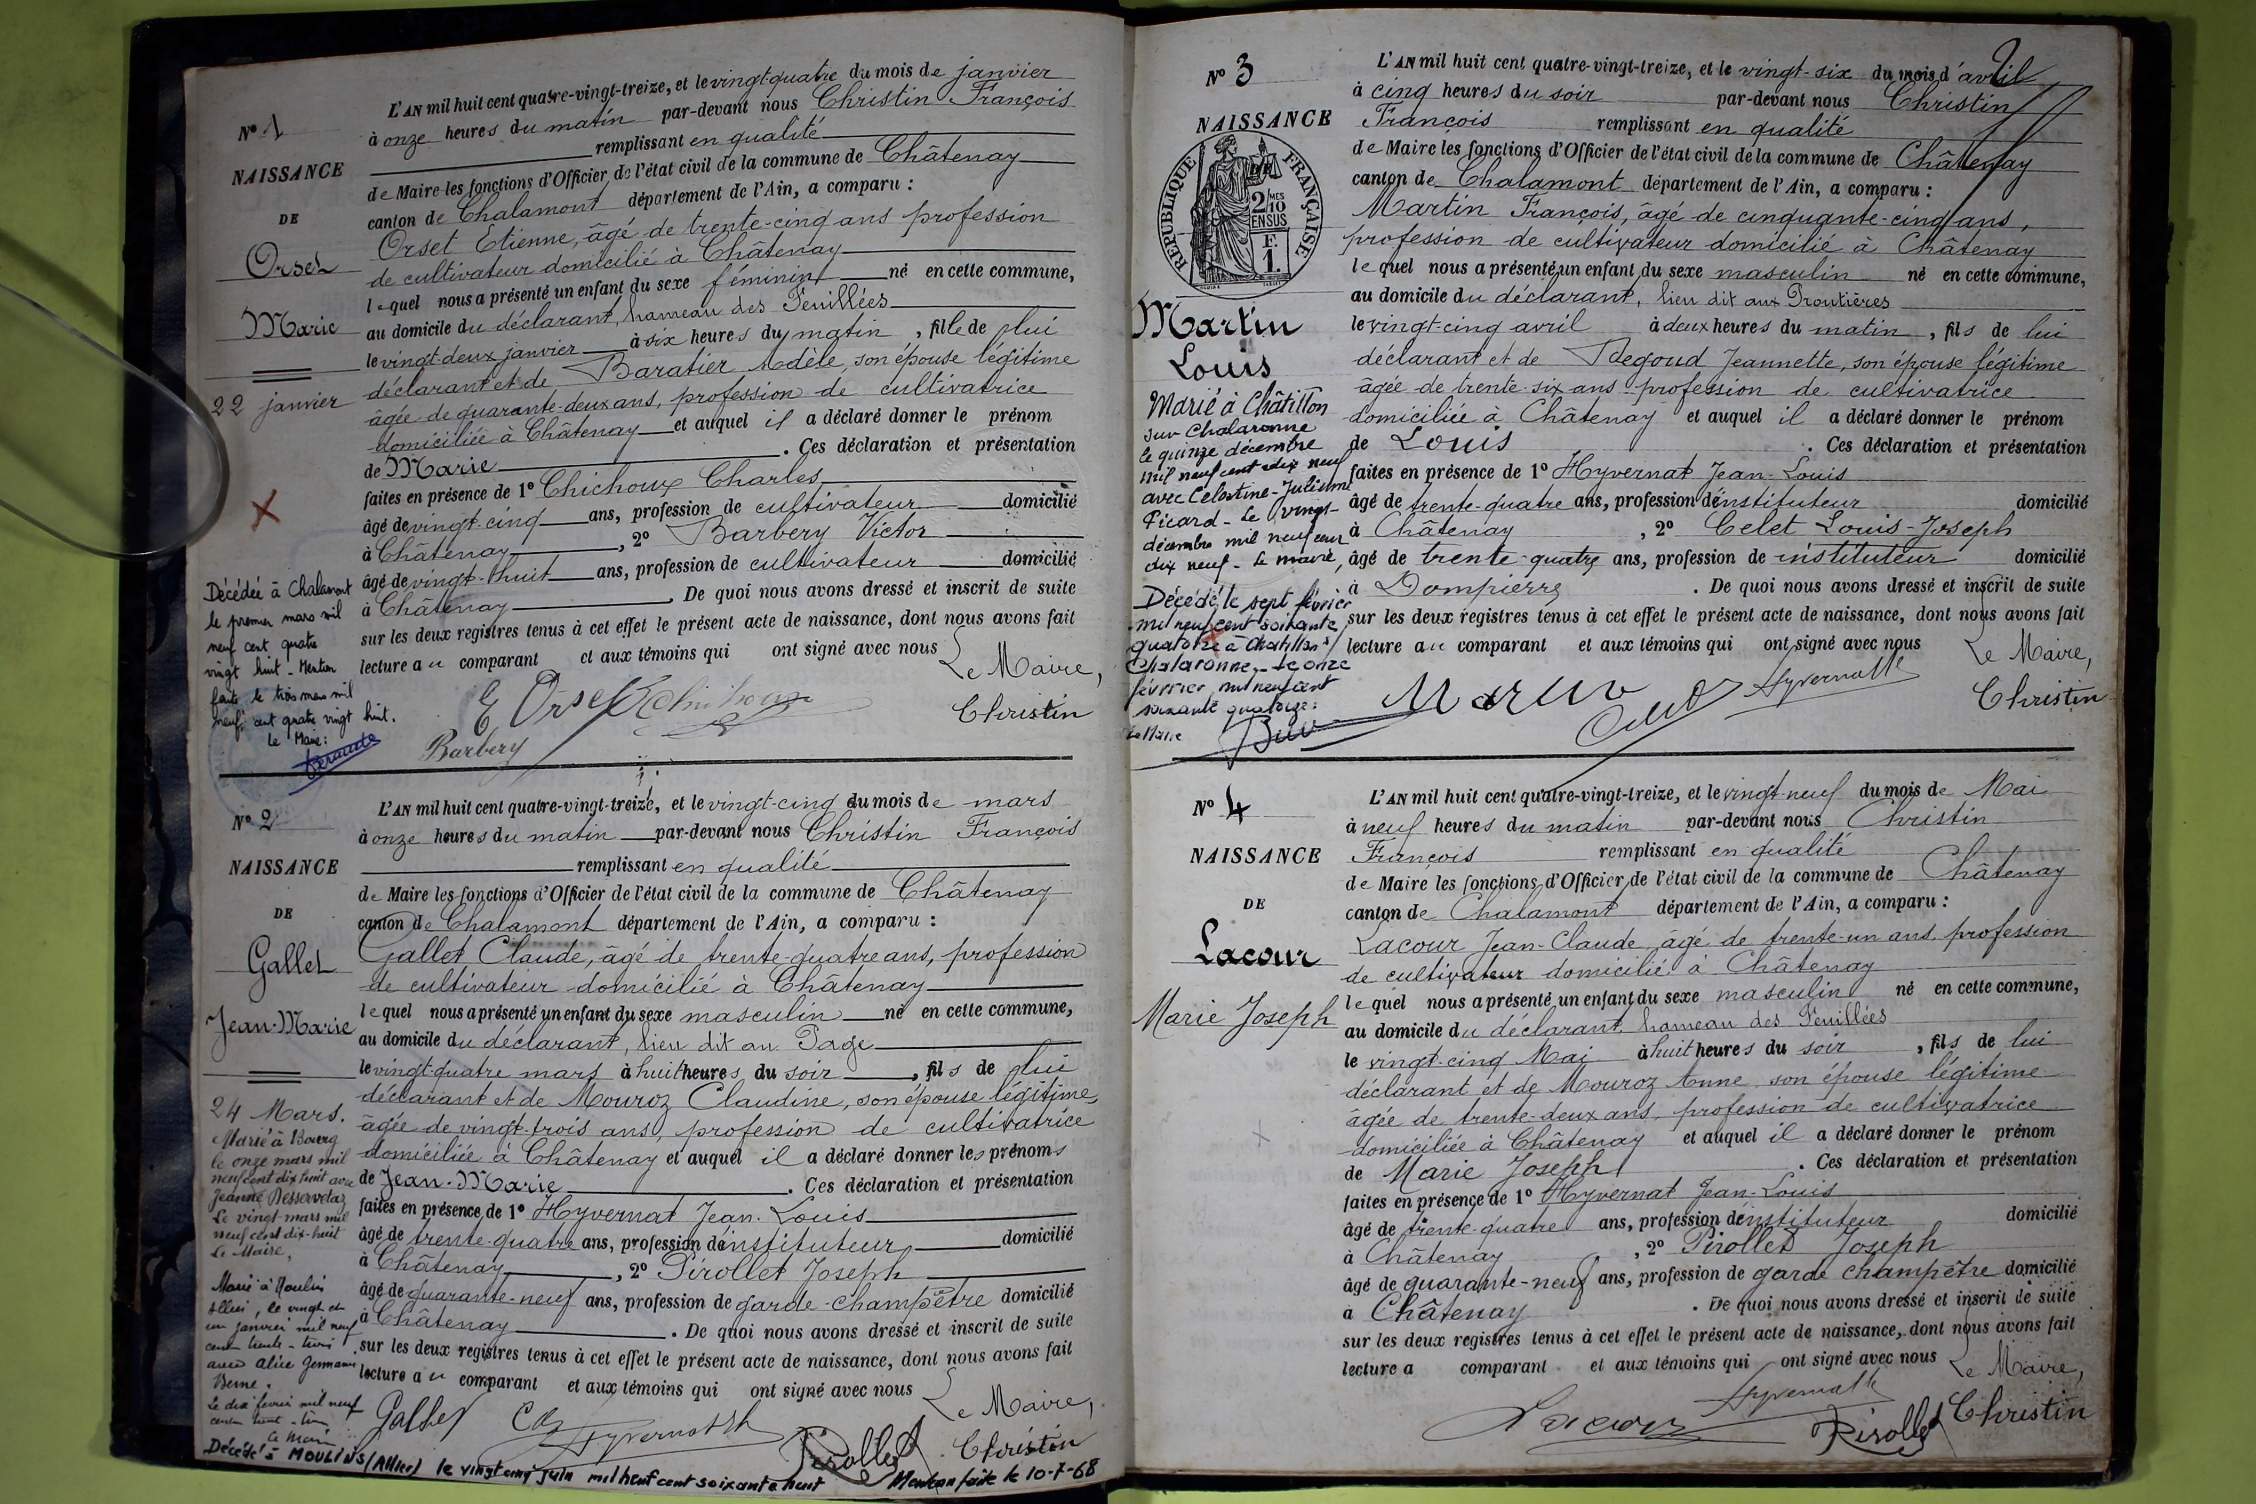 N° 1
NAISSANCE
DE
Orset
Marie
22 janvier
Décédée à Chalamont
le premier mars mil
neuf cent quatre
vingt huit - Mention
faite le trois mars mil
neuf cent quatre vingt huit.
Le Maire:
L'AN mil huit cent quatre-vingt-treize, et le vingt-quatre du mois de janvier
à onze heures du matin par-devant nous Christin François
remplissant en qualité
de Maire les fonctions d'Officier de l'état civil de la commune de Châtenay
canton de Chalamont département de l'Ain, a comparu :
Orset Etienne, âgé de trente-cinq ans profession
de cultivateur domicilié à Châtenay
lequel nous a présenté un enfant du sexe féminin né en cette commune,
au domicile du déclarant, hameau des Feuillées
le vingt-deux janvier à six heures du matin, fille de lui
déclarant et de Baratier Adèle, son épouse légitime
âgée de quarante-deux ans, profession de cultivatrice
domiciliée à Châtenay et auquel il a déclaré donner le prénom
de Marie. Ces déclaration et présentation
faites en présence de 1° Chichoux Charles
âgé de vingt-cinq ans, profession de cultivateur domicilié
à Châtenay, 2° Barbery Victor
âgé de vingt-huit ans, profession de cultivateur domicilié
à Châtenay. De quoi nous avons dressé et inscrit de suite
sur les deux registres tenus à cet effet le présent acte de naissance, dont nous avons fait
lecture au comparant et aux témoins qui ont signé avec nous
Le Maire,
E Orset Chichoux
Christin
Barbery
N° 2
NAISSANCE
DE
Gallet
Jean-Marie
24 Mars.
Marié à Bourg
le onze mars mil
neuf cent dix huit avec
Jeanne Desservetaz
Le vingt mars mil
neuf cent dix-huit
Le Maire,
Marié à Moulins
Allier, le vingt et
un janvier mil neuf
cent trente-trois
avec Alice Germaine
Le dix février mil neuf
cent trente-trois
Le Maire
L'AN mil huit cent quatre-vingt-treize, et le vingt-cinq du mois de mars
à onze heures du matin par-devant nous Christin François
remplissant en qualité
de Maire les fonctions d'Officier de l'état civil de la commune de Châtenay
canton de Chalamont département de l'Ain, a comparu :
Gallet Claude, âgé de trente-quatre ans, profession
de cultivateur domicilié à Châtenay
lequel nous a présenté un enfant du sexe masculin né en cette commune,
au domicile du déclarant, lieu dit au Page
le vingt-quatre mars à huit heures du soir, fils de lui
déclarant et de Mouroz Claudine, son épouse légitime,
âgée de vingt-trois ans, profession de cultivatrice
domiciliée à Châtenay et auquel il a déclaré donner les prénoms
de Jean-Marie. Ces déclaration et présentation
faites en présence de 1° Hyvernat Jean-Louis
âgé de trente-quatre ans, profession d'instituteur domicilié
à Châtenay, 2° Pirollet Joseph
âgé de quarante-neuf ans, profession de garde-champêtre domicilié
à Châtenay. De quoi nous avons dressé et inscrit de suite
sur les deux registres tenus à cet effet le présent acte de naissance, dont nous avons fait
lecture au comparant et aux témoins qui ont signé avec nous
Le Maire,
Gallet Hyvernat Pirollet Christin
Décédé à MOULINS (Allier) le vingt cinq juin mil neuf cent soixante huit Mention faite le 10-7-68
2
N° 3
NAISSANCE
RÉPUBLIQUE FRANÇAISE
2/10 EN SUS
F. 1.
Martin
Louis
Marié à Châtillon
sur Chalaronne
le quinze décembre
mil neuf cent dix neuf
avec Celestine-Julienne
Picard - Le vingt
décembre mil neuf cent
dix neuf - Le maire,
Décédé le sept février
mil neuf cent soixante
quatorze à Chatillon s/
Chalaronne - Le onze
février mil neuf cent
soixante quatorze :
Le Maire
L'AN mil huit cent quatre-vingt-treize, et le vingt-six du mois d'avril
à cinq heures du soir par-devant nous Christin
François remplissant en qualité
de Maire les fonctions d'Officier de l'état civil de la commune de Châtenay
canton de Chalamont département de l'Ain, a comparu :
Martin François, âgé de cinquante-cinq ans,
profession de cultivateur domicilié à Châtenay
lequel nous a présenté un enfant du sexe masculin né en cette commune,
au domicile du déclarant, lieu dit aux Proutières
le vingt-cinq avril à deux heures du matin, fils de lui
déclarant et de Regoud Jeannette, son épouse légitime
âgée de trente-six ans profession de cultivatrice
domiciliée à Châtenay et auquel il a déclaré donner le prénom
de Louis. Ces déclaration et présentation
faites en présence de 1° Hyvernat Jean-Louis
âgé de trente-quatre ans, profession d'instituteur domicilié
à Châtenay, 2° Celet Louis-Joseph
âgé de trente-quatre ans, profession de instituteur domicilié
à Dompierre. De quoi nous avons dressé et inscrit de suite
sur les deux registres tenus à cet effet le présent acte de naissance, dont nous avons fait
lecture au comparant et aux témoins qui ont signé avec nous
Le Maire,
Martin Celet Hyvernat
Christin
N° 4
NAISSANCE
DE
Lacour
Marie Joseph
L'AN mil huit cent quatre-vingt-treize, et le vingt-neuf du mois de Mai
à neuf heures du matin par-devant nous Christin
François remplissant en qualité
de Maire les fonctions d'Officier de l'état civil de la commune de Châtenay
canton de Chalamont département de l'Ain, a comparu :
Lacour Jean-Claude, âgé de trente-un ans, profession
de cultivateur domicilié à Châtenay
lequel nous a présenté un enfant du sexe masculin né en cette commune,
au domicile du déclarant, hameau des Feuillées
le vingt-cinq Mai à huit heures du soir, fils de lui
déclarant et de Mouroz Anne son épouse légitime
âgée de trente-deux ans, profession de cultivatrice
domiciliée à Châtenay et auquel il a déclaré donner le prénom
de Marie Joseph. Ces déclaration et présentation
faites en présence de 1° Hyvernat Jean-Louis
âgé de trente-quatre ans, profession d'instituteur domicilié
à Châtenay, 2° Pirollet Joseph
âgé de quarante-neuf ans, profession de garde champêtre domicilié
à Châtenay. De quoi nous avons dressé et inscrit de suite
sur les deux registres tenus à cet effet le présent acte de naissance, dont nous avons fait
lecture a comparant et aux témoins qui ont signé avec nous
Le Maire,
Lacour Hyvernat Pirollet Christin